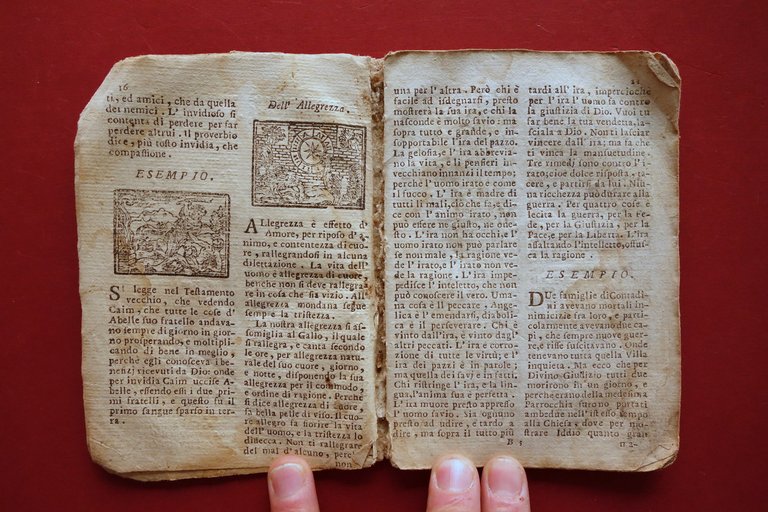 16
ti, ed amici, che da quella
dei nemici. L' invidioso si
contenta di perdere per far
perdere altrui. Il proverbio
dice, più tosto invidia, che
compassione.
ESEMPIO.
SI legge nel Testamento
vecchio, che vedendo
Caim, che tutte le cose d'
Abelle suo fratello andava-
no sempre di giorno in gior-
no prosperando, e moltipli-
cando di bene in meglio,
perchè egli conosceva i be-
nenzi ricevuti da Dio: onde
per invidia Caim uccise A-
belle, essendo essi i due pri-
mi fratelli, e questo fu il
primo sangue sparso in ter-
ra.
Dell' Allegrezza.
ALlegrezza è effetto d'
Amore, per riposo d' a-
nimo, e contentezza di cuo-
re, rallegrandosi in alcuna
dilettazione. La vita dell'
uomo è allegrezza di cuore
benche non si deve rallegra-
re in cosa che sia vizio. All'
allegrezza mondana segue
sempre la tristezza.
La nostra allegrezza si as-
somiglia al Gallo, il quale
si rallegra, e canta secondo
le ore, per allegrezza natu-
rale del suo cuore, giorno,
e notte, disponendo la sua
allegrezza per il commodo,
e ordine di ragione. Perchè
si dice allegrezza di cuore,
fa bella pelle di viso. Il cuo-
re allegro fa fiorire la vita
dell' uomo, e la tristezza lo
disecca. Non ti rallegrare
del mal d'alcuno, perc'
non
una per l' altra. Però chi è
facile ad isdegnarsi, presto
mostrerà la sua ira, e chi la
nasconde è molto savio: ma
sopra tutto e grande, e in-
sopportabile l'ira del pazzo.
La gelosia, e l' ira abbrevia-
no la vita, e li pensieri in-
vecchiano innanzi il tempo;
perchè l' uomo irato è come
il fuoco. L' ira è madre di
tutti li mali, ciò che fa, e di-
ce con l' animo irato, non
può essere nè giusto, ne one-
sto. L' ira non ha occhi: e l'
uomo irato non può parlare
se non male, la ragione ve-
de l' irato, e l' irato non ve-
de la ragione. L' ira impe-
disce l' inteletto, che non
può conoscere il vero. Uma-
na cosa è il peccare, Ange-
lica è l' emendarsi, diaboli-
ca è il perseverare. Chi è
vinto dall' ira, è vinto dagl'
altri peccati. L' ira è corro-
zione di tutte le virtù; e l'
ira dei pazzi è in parole;
ma quella dei savj è in fatti.
Chi ristringe l' ira, e la lin-
gua, l'anima sua è perfetta.
L' ira muore presto appresso
l' uomo savio. Sia ognuno
presto ad udire, e tardo a
dire, ma sopra il tutto più
B 3
21
tardi all' ira, imperciocchè
per l' ira l' uomo fa contro
la giustizia di Dio. Vuoi tu
far bene la tua vendetta, la-
sciala a Dio. Non ti lasciar
vincere dall' ira; ma fa che
ti vinca la mansuetudine.
Tre rimedj sono contro l' i-
rato, cioè dolce risposta, ta-
cere, e partirsi da lui. Niu-
na ricchezza può durare alla
guerra. Per quattro cose è
lecita la guerra, per la Fe-
de, per la Giustizia, per la
Pace, e per la Libertà. L' ira
assaltando l'intelletto, offus-
ca la ragione.
ESEMPIO.
DUe famiglie di Contadi-
ni avevano mortali in-
nimicizie fra loro, e parti-
colarmente avevano due ca-
pi, che sempre nuove guer-
re, e risse suscitavano. Onde
tenevano tutta quella Villa
inquieta. Ma ecco che per
Divino Giudizio tutti due
morirono in un giorno, e
perche erano della medesima
Parrocchia furono portati
ambedue nell' istesso tempo
alla Chiesa, dove per mo-
strare Iddio quanto gran
n a-